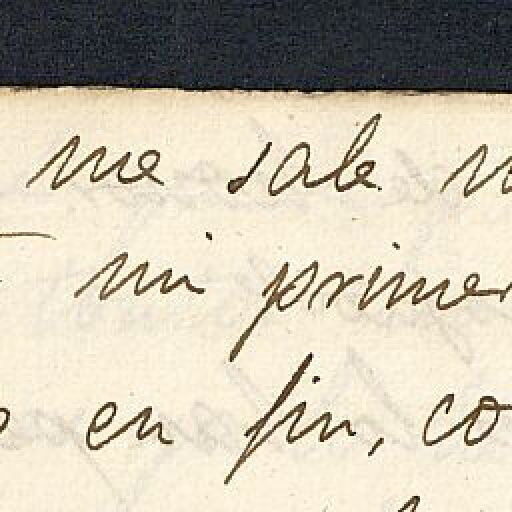 me sale
mi primer
en fin, co